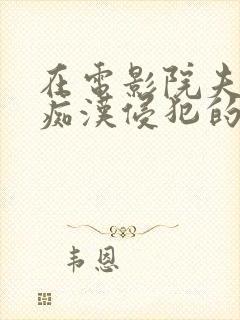 在电影院夫
痴汉侵犯的
韦恩